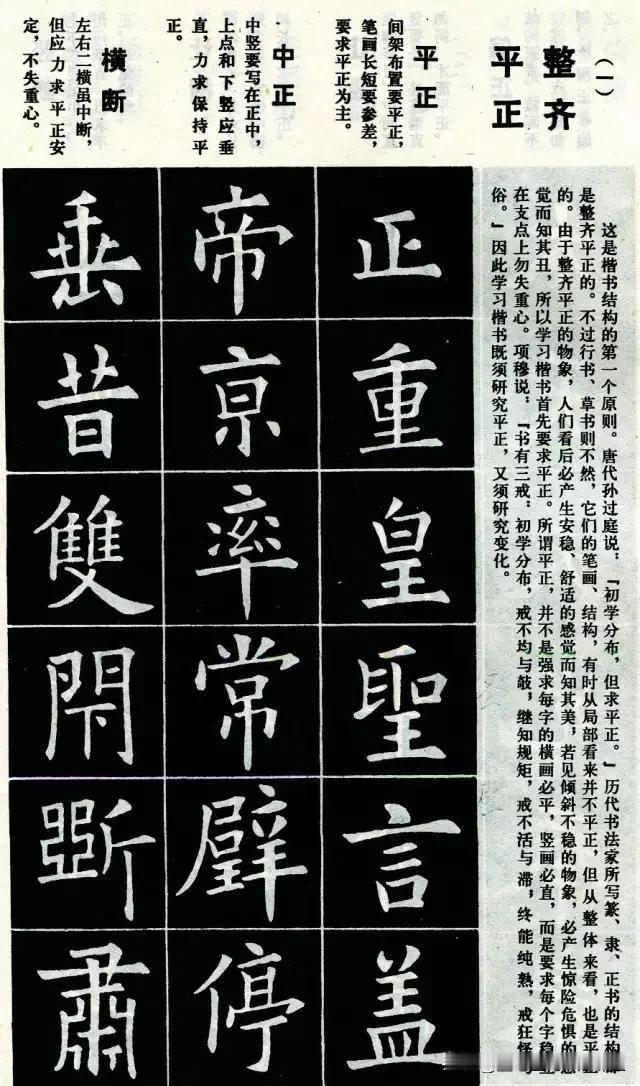 （一）
整齐
平正
这是楷书结构的第一个原则。唐代孙过庭说，『初学分布，但求平正。』历代书法家所写篆、隶、正书的结构
是整齐平正的。不过行书、草书则不然，它们的笔画、结构，有时从局部看来并不平正，但从整体来看，也是平
的。由于整齐平正的物象，人们看后必产生安稳、舒适的感觉而知其美，若见倾斜不稳的物象，必产生惊险危惧的
觉而知其丑，所以学习楷书首先要求平正。所谓平正，并不是强求每字的横画必平，竖画必直，而是要求每个字稳
在支点上勿失重心。项穆说，『书有三戒：初学分布，戒不均与欹，继知规矩，戒不活与滞，终能纯熟，戒狂怪与
俗。』因此学习楷书既须研究平正，又须研究变化。
平正
间架布置要平正，
笔画长短要参差，
要求平正为主。
正
重
皇
聖
言
盖
中正
中竖要写在正中，
上点和下竖应垂
直，力求保持平
正。
帝
亰
率
常
辟
停
横断
左右二横虽中断，
但应力求平正安
定，不失重心。
垂
昔
雙
閇
肅